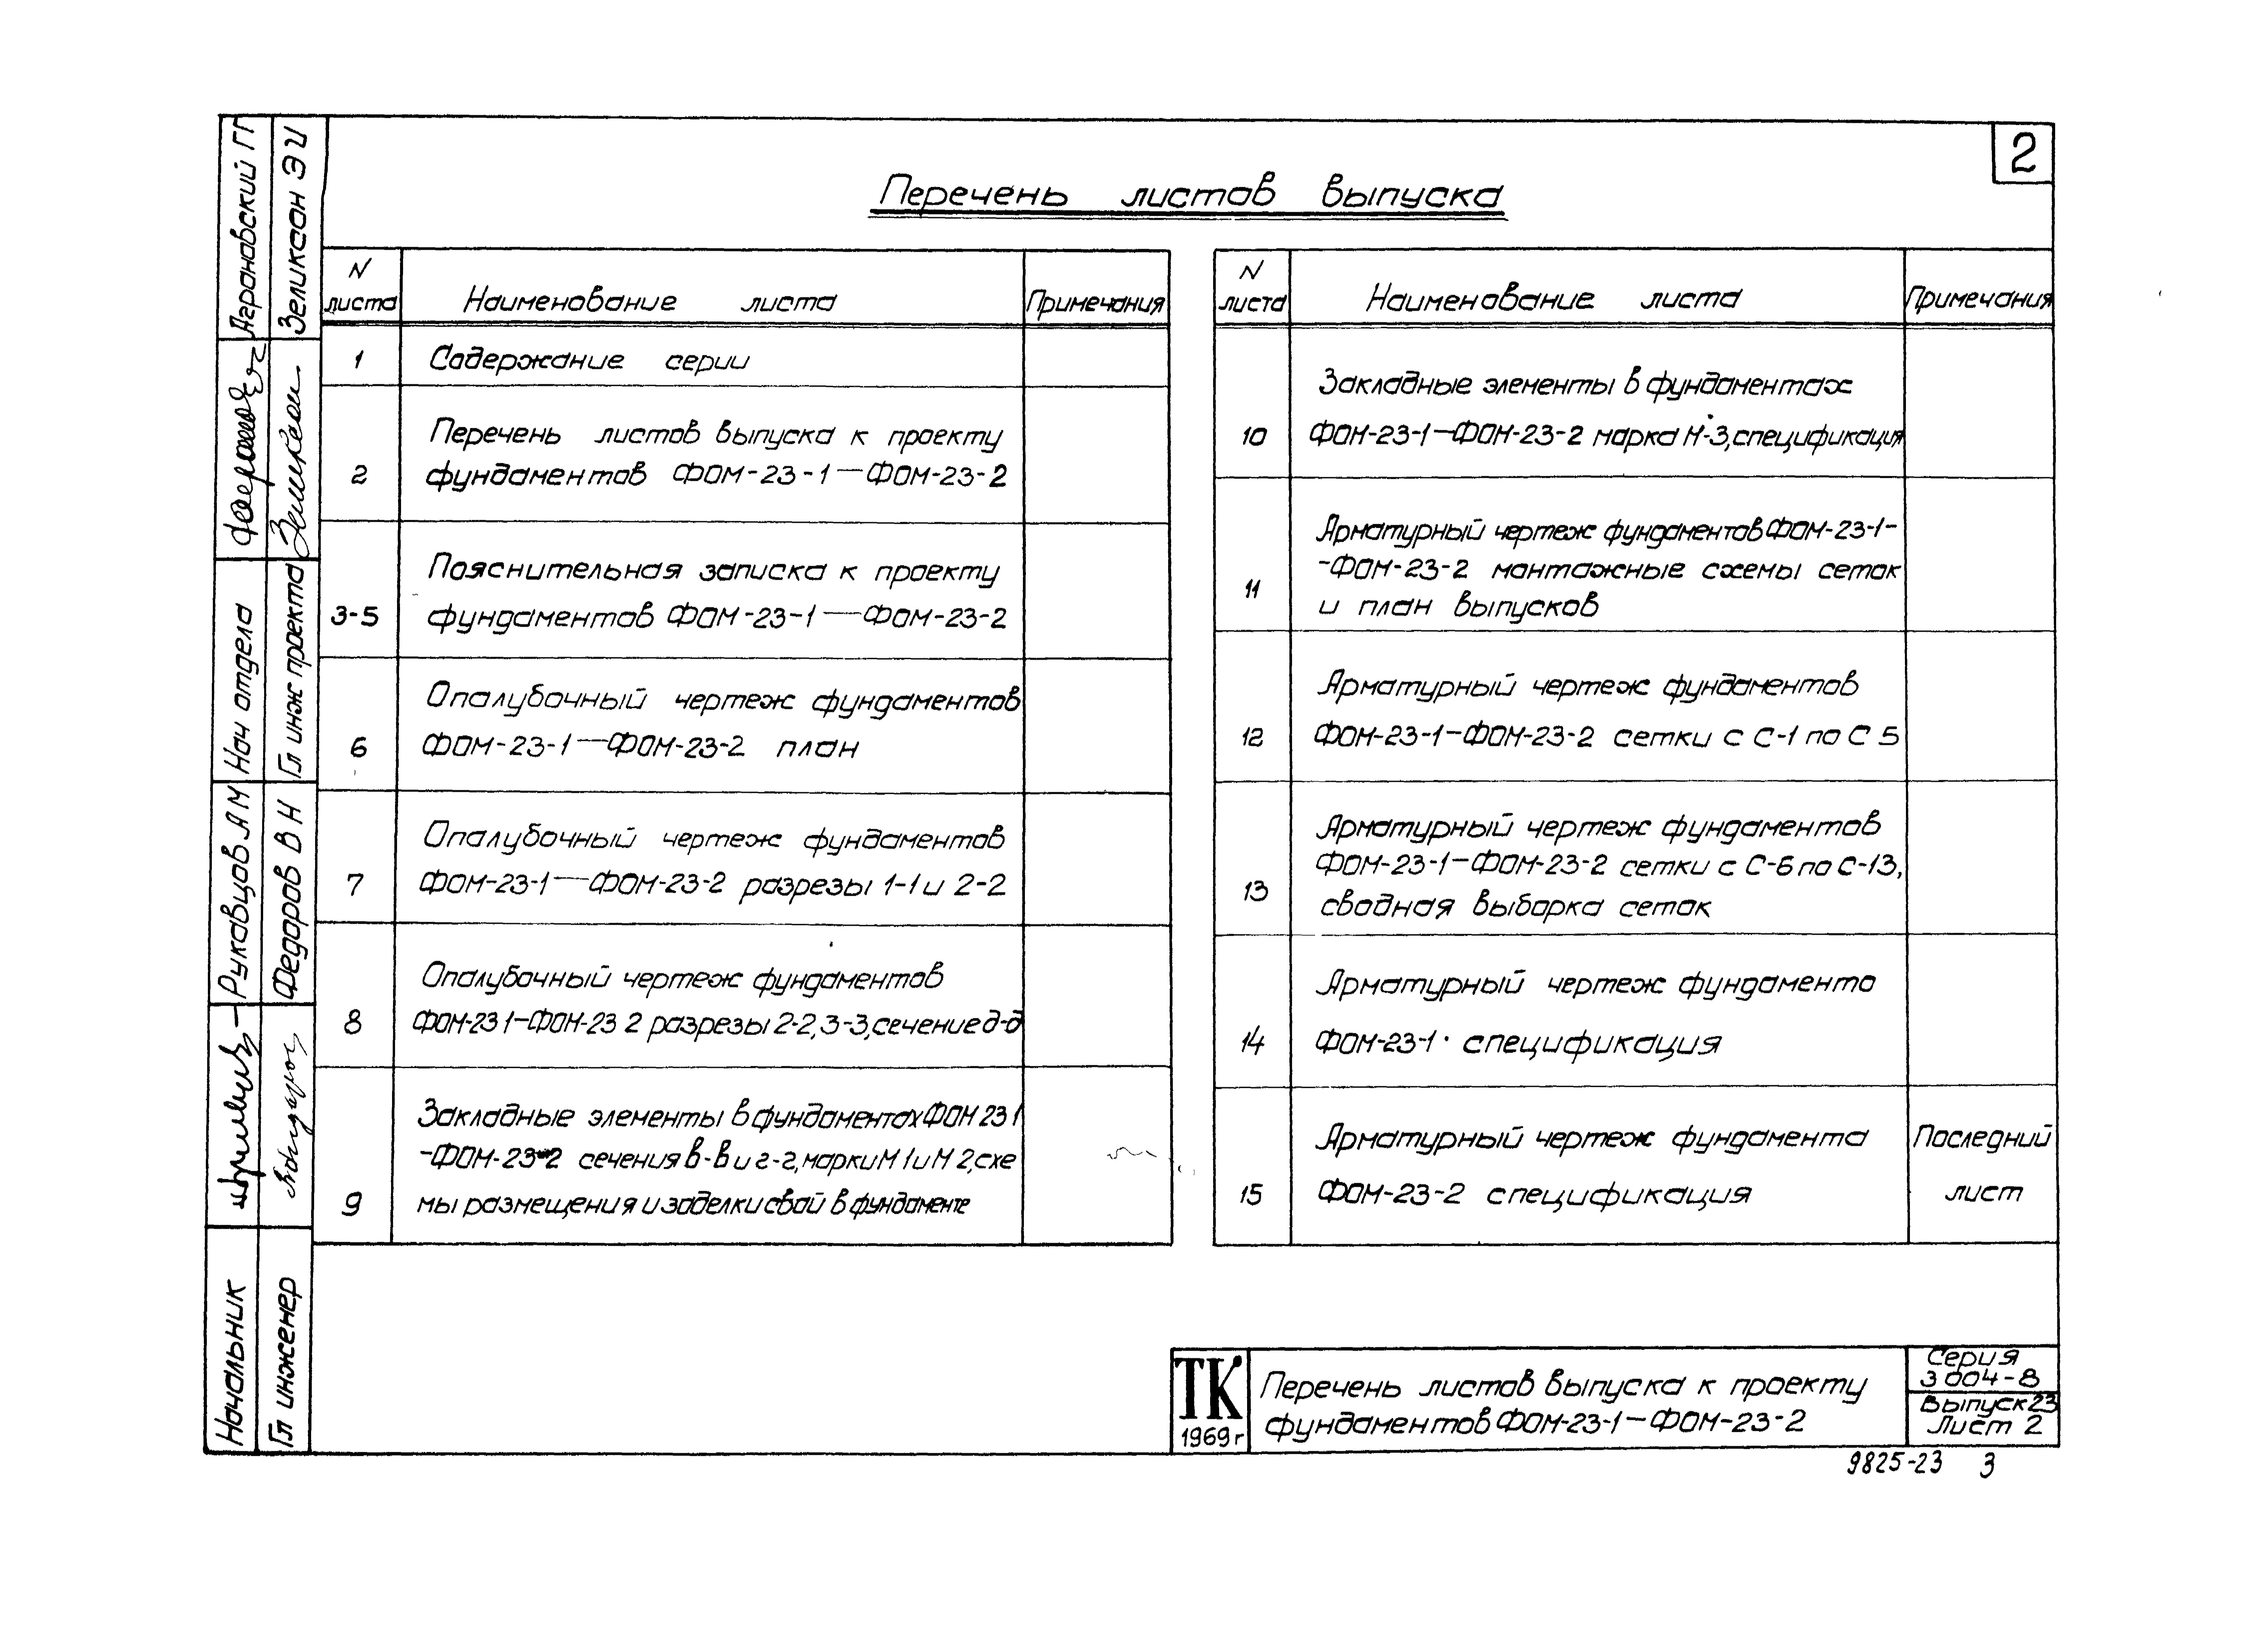 2
Перечень листов выпуска
N листа
Наименование листа
Примечания
1
Содержание серии
2
Перечень листов выпуска к проекту
фундаментов ФОМ-23-1—ФОМ-23-2
3-5
Пояснительная записка к проекту
фундаментов ФОМ-23-1—ФОМ-23-2
6
Опалубочный чертеж фундаментов
ФОМ-23-1—ФОМ-23-2 план
7
Опалубочный чертеж фундаментов
ФОМ-23-1—ФОМ-23-2 разрезы 1-1 и 2-2
8
Опалубочный чертеж фундаментов
ФОМ-23 1—ФОМ-23 2 разрезы 2-2, 3-3, сечение д-д
9
Закладные элементы в фундаментах ФОМ 23 1
-ФОМ-23-2 сечения в-в и г-г, марки М 1 и М 2, схе
мы размещения и заделки свай в фундаменте
N листа
Наименование листа
Примечания
10
Закладные элементы в фундаментах
ФОМ-23-1—ФОМ-23-2 марка М-3, спецификация
11
Арматурный чертеж фундаментов ФОМ-23-1-
-ФОМ-23-2 монтажные схемы сеток
и план выпусков
12
Арматурный чертеж фундаментов
ФОМ-23-1—ФОМ-23-2 сетки с С-1 по С 5
13
Арматурный чертеж фундаментов
ФОМ-23-1—ФОМ-23-2 сетки с С-6 по С-13,
сводная выборка сеток
14
Арматурный чертеж фундамента
ФОМ-23-1. спецификация
15
Арматурный чертеж фундамента
ФОМ-23-2 спецификация
Последний
лист
Начальник
Рукавцов А М
Нач отдела
Аграновский ГГ
Гл инженер
Федоров В Н
Гл инж проекта
Зеликсон Э И
ТК
1969 г
Перечень листов выпуска к проекту
фундаментов ФОМ-23-1—ФОМ-23-2
Серия
3 004-8
Выпуск 23
Лист 2
9825-23 3